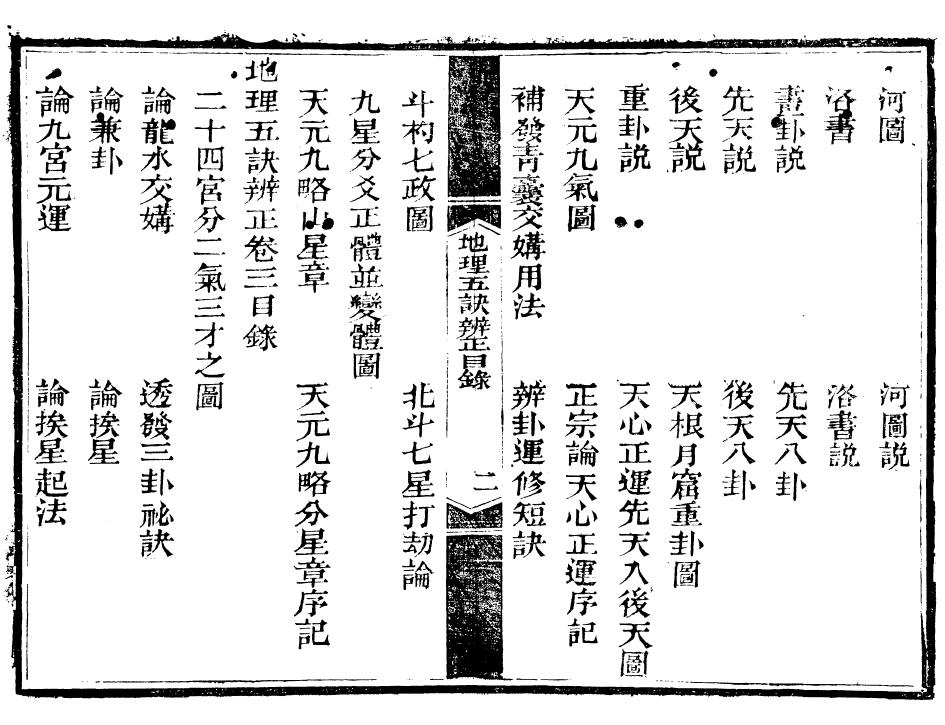 河圖　河圖説
洛書　洛書説
畫卦説　先天八卦
先天説　後天八卦
後天説　天根月窟重卦圖
重卦説　天心正運先天入後天圖
天元九氣圖　正宗論天心正運序記
補發青囊交媾用法　辨卦運修短訣
地理五訣辨正目錄　二
斗杓七政圖　北斗七星打刼論
九星分爻正體並變體圖
天元九略山星章　天元九略分星章序記
地理五訣辨正卷三目錄
二十四宮分二氣三才之圖
論龍水交媾　透發三卦祕訣
論兼卦　論挨星
論九宮元運　論挨星起法